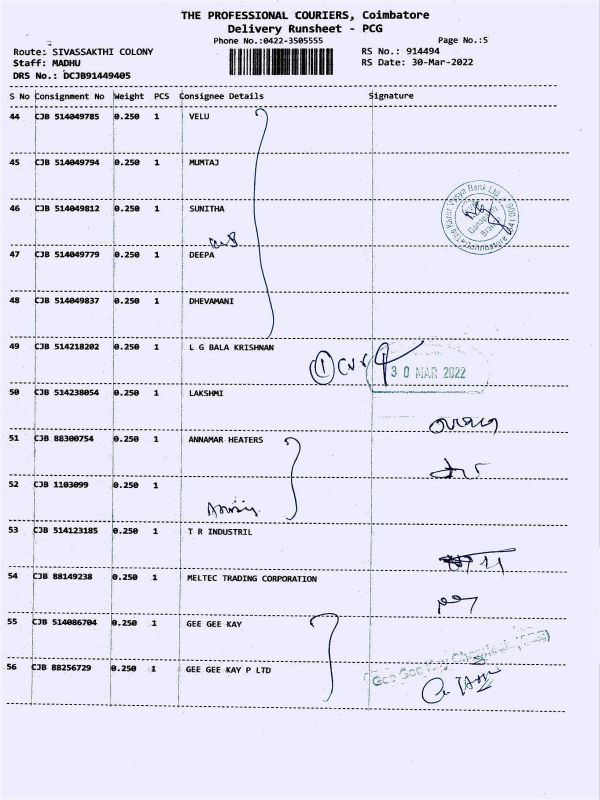 THE PROFESSIONAL COURIERS, Coimbatore
Delivery Runsheet - PCG
Phone No.:0422-3505555
Page No.:5
Route: SIVASSAKTHI COLONY
RS No.: 914494
Staff: MADHU
RS Date: 30-Mar-2022
DRS No.: DCJB91449405
S No Consignment No Weight PCS Consignee Details Signature
44 CJB 514049785 0.250 1 VELU
45 CJB 514049794 0.250 1 MUMTAJ
46 CJB 514049812 0.250 1 SUNITHA
47 CJB 514049779 0.250 1 DEEPA
48 CJB 514049837 0.250 1 DHEVAMANI
49 CJB 514218202 0.250 1 L G BALA KRISHNAN
30 MAR 2022
50 CJB 514238054 0.250 1 LAKSHMI
51 CJB 88300754 0.250 1 ANNAMAR HEATERS
52 CJB 1103099 0.250 1
53 CJB 514123185 0.250 1 T R INDUSTRIL
54 CJB 88149238 0.250 1 MELTEC TRADING CORPORATION
55 CJB 514086704 0.250 1 GEE GEE KAY
56 CJB 88256729 0.250 1 GEE GEE KAY P LTD
Gee Gee Kay